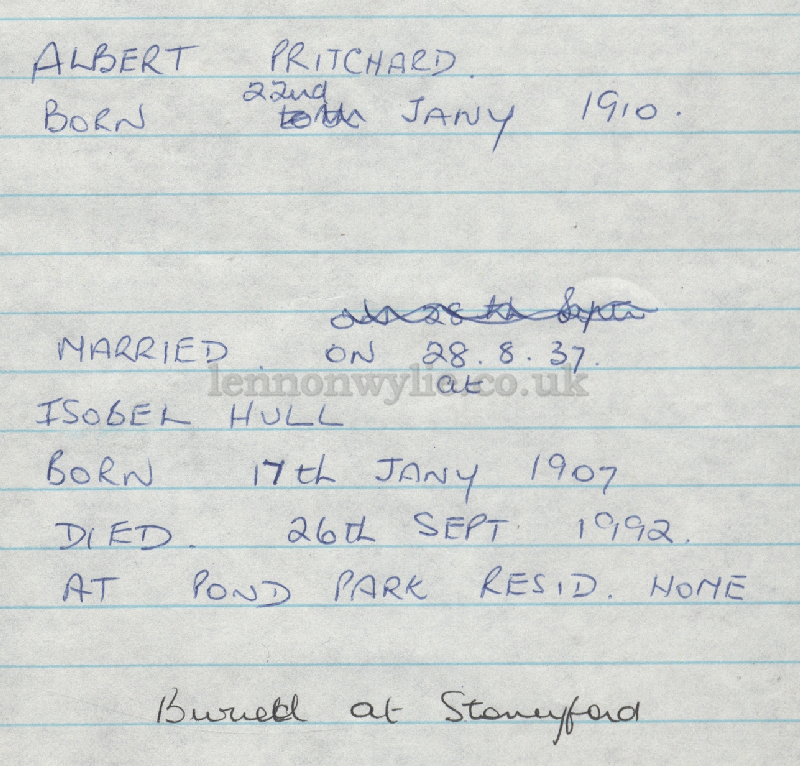 ALBERT PRITCHARD.
22nd
BORN JANY 1910.
28th Septr
MARRIED. ON 28.8.37.
lennonwylie.co.uk
at
ISOBEL HULL
BORN 17th JANY 1907
DIED. 26th SEPT. 1992.
AT POND PARK RESID. HOME
Buried at Stoneyford